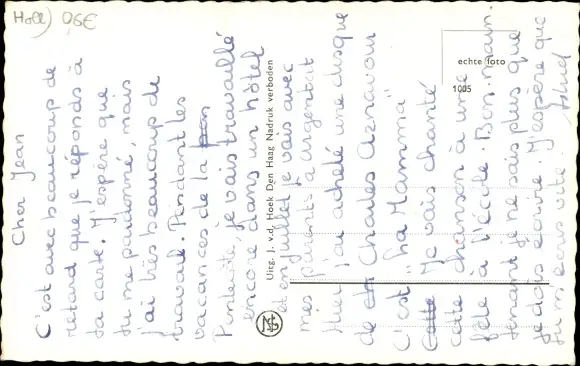 Holl) 0,6€
Cher Jean
C'est avec beaucoup de
retard que je réponds à
ta carte. J'espère que
tu me pardonné, mais
j'ai très beaucoup de
travail. Pendant les
vacances de la
Pintecôte, je vais travaillé
encore dans un hôtel
et en juillet je vais avec
mes parents à Argentat
Hier j'ai acheté une disque
de Charles Aznavour
C'est "La Mamma"
Je vais chanté
cette chanson à une
fête à l'école. Bon, main-
tenant je ne sais plus que
je dois écrire. J'espère que
tu m'écris vite.
Uitg. J. v.d. Hoek Den Haag Nadruk verboden
echte foto
1005